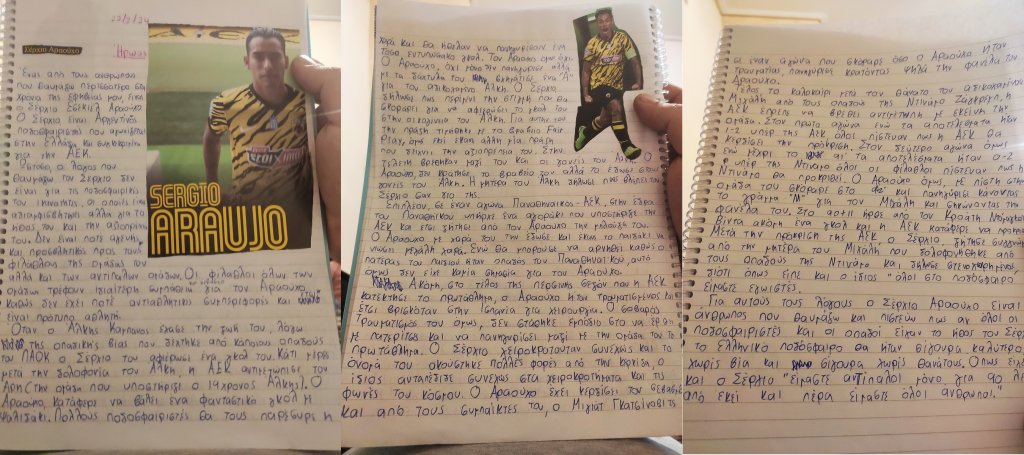 22/2/24
Ήρωας
Σέρχιο Αραούχο
Ένας από τους ανθρώπους
που θαυμάζω περισσότερο στα
χρόνια της εφηβείας μου είναι
ο Σέρχιο Εσεκιέλ Αραούχο.
Ο Σέρχιο είναι Αργεντινός
ποδοσφαιριστής που αγωνίζεται
στην Ελλάδα και συγκεκριμένα
για την ΑΕΚ.
Ωστόσο, ο λόγος που
θαυμάζω τον Σέρχιο δεν
είναι για τις ποδοσφαιρικές
του ικανότητες, οι οποίες είναι
αδιαμφισβήτητες αλλά για το
ήθος του και την ανθρωπιά
του. Δεν είναι ποτέ αγενής
και προσβλητικός προς τους
φιλάθλους της ομάδας του
αλλά και των αντίπαλων ομάδων. Οι φίλαθλοι όλων των
ομάδων τρέφουν ιδιαίτερη συμπάθεια για τον Αραούχο
καθώς δεν έχει ποτέ αντιαθλητική συμπεριφορά και
είναι πρότυπο αθλητή.
Όταν ο Άλκης Καμπανός έχασε την ζωή του, λόγω
της οπαδικής βίας που δέχτηκε από κάποιους οπαδούς
του ΠΑΟΚ ο Σέρχιο του αφιέρωσε ένα γκολ του. Κάτι μέρες
μετά την δολοφονία του Άλκη, η ΑΕΚ αντιμετώπισε τον
Άρη (την ομάδα που υποστήριζε ο 19χρονος Άλκης). Ο
Αραούχο, κατάφερε να βάλει ένα φανταστικό γκολ με
ψαλιδάκι. Πολλούς ποδοσφαιριστές θα τους παρέσυρε η
SERGIO
ARAUJO
χαρά και θα ήθελαν να πανηγυρίσουν ένα
τόσο εντυπωσιακό γκολ. Τον Αραούχο όμως όχι.
Ο Αραούχο, όχι μόνο δεν πανηγύρισε αλλά
με τα δάχτυλα του σχημάτισε ένα "Α"
για τον αδικοχαμένο Άλκη. Ο Σέρχιο
δήλωσε πως περίμενε την στιγμή που θα
σκοράρει για να αφιερώσει το γκολ του
στην οικογένεια του Άλκη. Για αυτήν του
την πράξη τιμήθηκε με το βραβείο Fair
Play, από εκεί έκαμε αλλη μία πράξη
που δείχνει την αξιοπρέπεια του. Στην
τελετή βρέθηκαν μαζί του και οι γονείς του Άλκη. Ο
Αραούχο, δεν κράτησε το βραβείο του αλλά το έδωσε στους
γονείς του Άλκη. Η μητέρα του Άλκη δήλωσε πως βλέπει τον
Σέρχιο σαν γιο της.
Επιπλέον, σε έναν αγώνα Παναθηναϊκός - ΑΕΚ, στην έδρα
του Παναθηναϊκού υπήρχε ένα αγοράκι που υποστήριζε την
ΑΕΚ και έτσι ζήτησε από τον Αραούχο την μπλούζα του.
Ο Αραούχο με χαρά του την έδωσε και έκανε το παιδάκι να
νιώσει μεγάλη χαρά. Ενώ θα μπορούσε να αρνηθεί καθώς ο
πατέρας του παιδιού ήταν οπαδός του Παναθηναϊκού, αυτό
όμως δεν είχε καμία σημασία για τον Αραούχο.
Ακόμη, στο τέλος της περσινής σεζόν που η ΑΕΚ
κατέκτησε το πρωτάθλημα, ο Αραούχο ήταν τραυματισμένος και
έτσι βρισκόταν στην Ισπανία για χειρουργείο. Ο σοβαρός
τραυματισμός του όμως, δεν στάθηκε εμπόδιο στο να έρθει
με πατερίτσες και να πανηγυρίσει μαζί με την ομάδα του το
πρωτάθλημα. Ο Σέρχιο χειροκροτούταν συνεχώς και το
όνομά του ακούστηκε πολλές φορές από την κερκίδα, ο
ίδιος ανταπέδιδε συνεχώς στα χειροκροτήματα και τις
φωνές του κόσμου. Ο Αραούχο έχει κερδίσει τον σεβασμό
και από τους συμπαίκτες του, ο Μίχιατ Γκατσίνοβιτς
σε έναν αγώνα που σκόραρε όσο ο Αραούχο ήταν
τραυματίας, πανηγύρισε κρατώντας ψηλά την φανέλα του
Αραούχο.
Τέλος, το καλοκαίρι μετά τον θάνατο του αδικοχαμένου
Μιχάλη από τους οπαδούς της Ντιναμό Ζάγκρεμπ, η
ΑΕΚ έπρεπε να βρεθεί αντιμέτωπη με εκείνη την
ομάδα. Στον πρώτο αγώνα ενώ τα αποτελέσματα ήταν
1-2 υπέρ της ΑΕΚ όλοι πίστευαν πως η ΑΕΚ θα
κερδίσει την πρόκριση. Στον δεύτερο αγώνα όμως
ενώ μέχρι το 90' τα αποτελέσματα ήταν 0-2
υπέρ της Ντιναμό όλοι οι φίλαθλοι πίστευαν πως η
Ντιναμό θα προκριθεί. Ο Αραούχο όμως, με πίστη στην
ομάδα του σκόραρε στο και πανηγύρισε κάνοντας
το γράμμα "Μ" για τον Μιχάλη και σηκώνοντας την
φανέλα του. Στο 90+11 ήρθε από τον Κροάτη Ντομαγκόι
Βίντα ακόμη ένα γκολ και η ΑΕΚ κατάφερε να προκριθεί.
Μετά την πρόκριση της ΑΕΚ ο Σέρχιο ζήτησε συγγνώμη
από την μητέρα του Μιχάλη που δολοφονήθηκε από
τους οπαδούς της Ντιναμό και δήλωσε στεναχωρημένος,
διότι όπως είπε και ο ίδιος "όλοι στο ποδόσφαιρο
είμαστε εγωιστές".
Για αυτούς τους λόγους ο Σέρχιο Αραούχο είναι
άνθρωπος που θαυμάζω και πιστεύω πως αν όλοι οι
ποδοσφαιριστές και οι οπαδοί είχαν το ήθος του Σέρχιο
το Ελληνικό ποδόσφαιρο θα ήταν σίγουρα καλύτερο,
χωρίς βία και σίγουρα χωρίς θανάτους. Όπως είπε
και ο Σέρχιο "είμαστε αντίπαλοι μόνο για 90 λεπτά
από εκεί και πέρα είμαστε όλοι άνθρωποι."